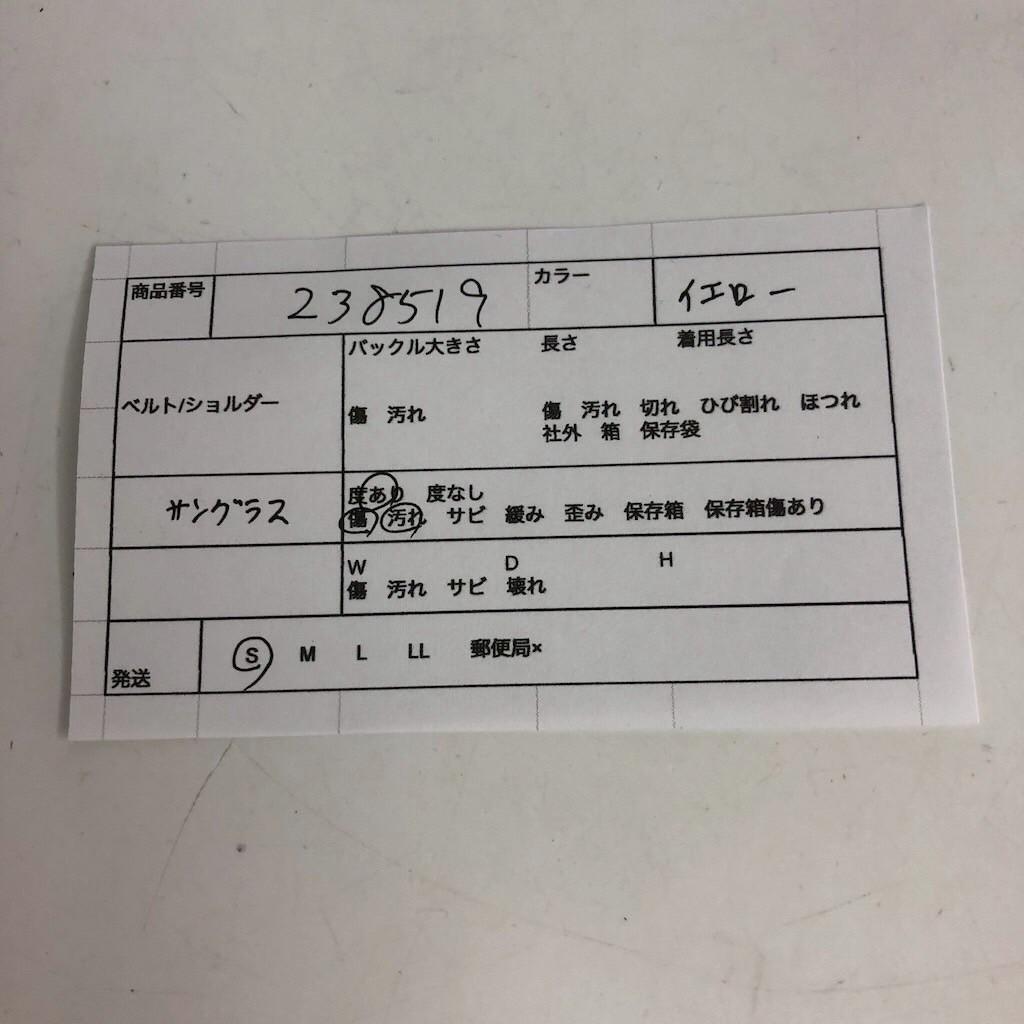 商品番号 238519 カラー イエロー
ベルト/ショルダー
バックル大きさ 長さ 着用長さ
傷 汚れ 傷 汚れ 切れ ひび割れ ほつれ
社外 箱 保存袋
サングラス
度あり 度なし
傷 汚れ サビ 緩み 歪み 保存箱 保存箱傷あり
W D H
傷 汚れ サビ 壊れ
発送 S M L LL 郵便局×